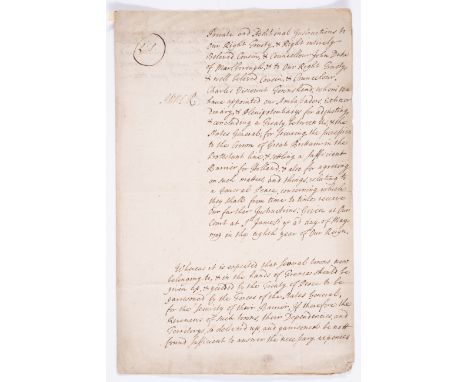 Private and Additional Instructions to
Our Right Trusty, & Right entirely
Beloved Cousin, & Councellor John Duke
of Marlborough, & to Our Right Trusty
& well beloved Cousin, & Councellour,
Charles Viscount Townshend, whom We
Anne R.
have appointed our Ambassadors Extraor-
dinary, & Plenipotentiarys for adjusting,
& concluding a Treaty between us, & the
States General, for securing the succession
to the Crown of Great Britain in the
Protestant line, & setling a sufficient
Barrier for Holland, & also for agreeing
on such matters and things, relating to
a General Peace, concerning which
they shall from time to time receive
Our farther Instructions. Given at Our
Court at St. James's ye day of May
1709 in the eighth year of Our Reign.
Whereas it is expected that several towns now
belonging to, & in the hands of France should be
given up, & yielded by the Treaty of Peace to be
garrisoned by the Forces of the States General,
for the security of their Barrier, if therefore the
Revenues of such towns, their Dependencies, and
Territorys, so delivered up, and garrisoned be not
found sufficient to answer the necessary expences